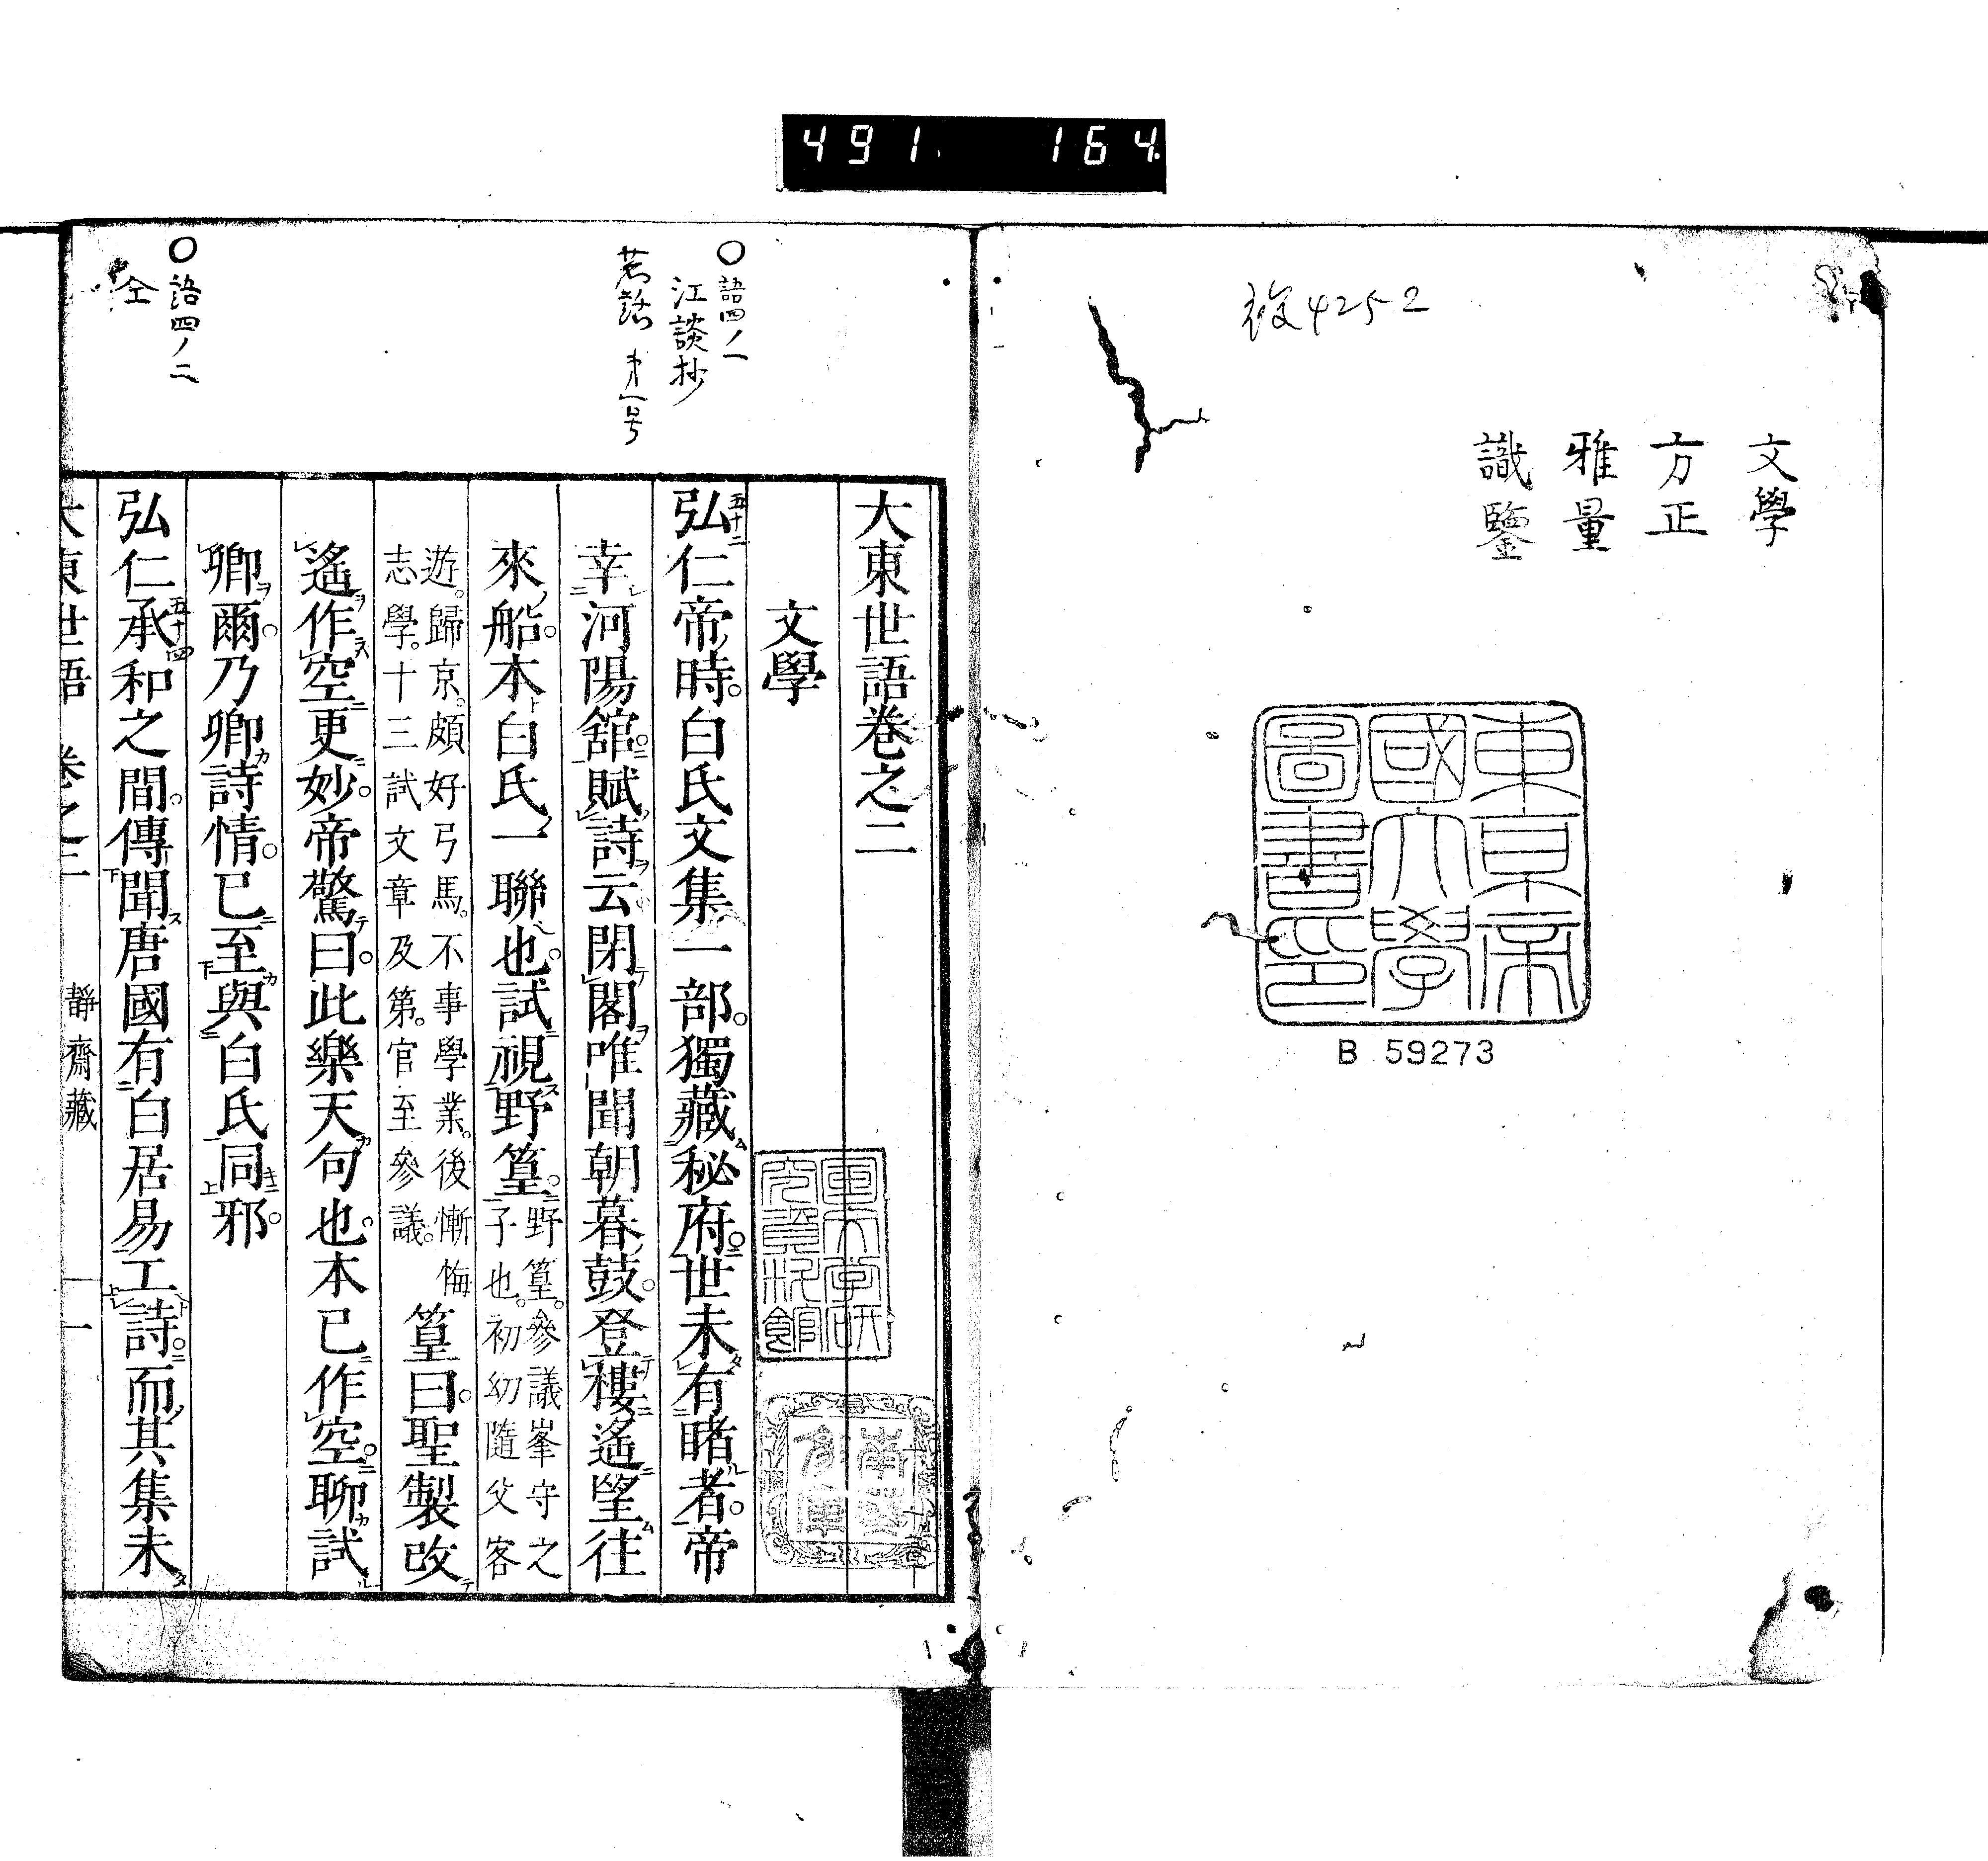 491 164
文學
方正
雅量
識鑒
4252
東京帝
國大學
圖書印
B 59273
○語四ノ一
江談抄
○語四ノ二
仝
大東世語卷之二
文學
弘仁帝時。白氏文集一部。獨藏秘府。世未有睹者。帝
幸河陽舘。賦詩云閉閣唯聞朝暮鼓。登樓遙望往
來船。本白氏一聯也。試視野篁。野篁。參議峯守之
子也。初幼隨父客
遊。歸京。頗好弓馬。不事學業。後慚悔
志學。十三試文章及第。官至參議。
篁曰。聖製改
遙作空更妙。帝驚曰。此樂天句也。本已作空。聊試
卿爾。乃卿詩情。已至與白氏同邪。
弘仁承和之間。傳聞唐國有白居易工詩。而其集未
大東世語 卷之二 一 靜齋藏
五十二
五十四